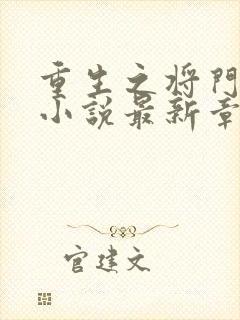 重生之将門
小説最新章
官建文